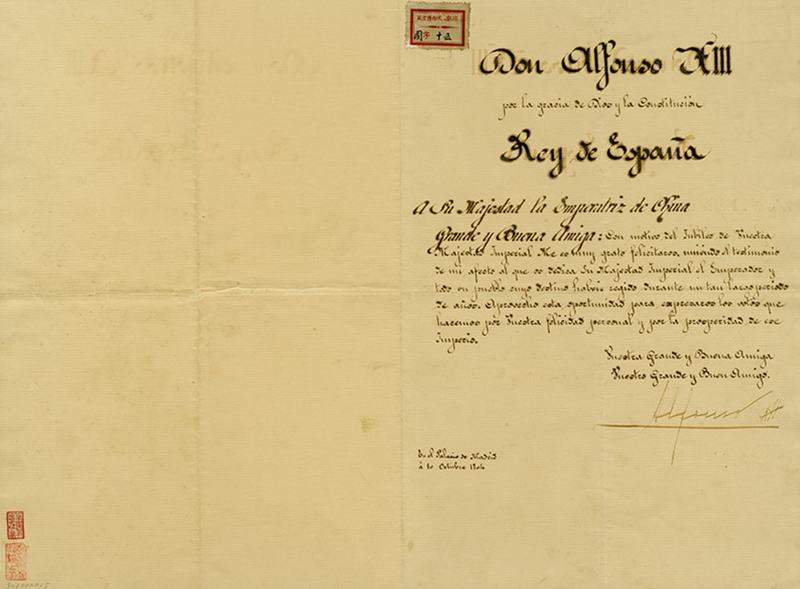 國字 十五
Don Alfonso XIII
por la gracia de Dios y la Constitución
Rey de España
A Su Majestad la Emperatriz de China
Grande y Buena Amiga: Con motivo del Jubileo de Vuestra
Majestad Imperial Me es muy grato felicitaros, uniendo el testimonio
de mi afecto al que os dedica Su Majestad Imperial el Emperador y
todo un pueblo cuyo destino habeis regido durante un tan largo periodo
de años. Aprovecho esta oportunidad para expresaros los votos que
hacemos por Vuestra felicidad personal y por la prosperidad de ese
Imperio.
Vuestra Grande y Buena Amiga
Vuestro Grande y Buen Amigo.
Alfonso XIII
En el Palacio de Madrid
á 10 Octubre 1904